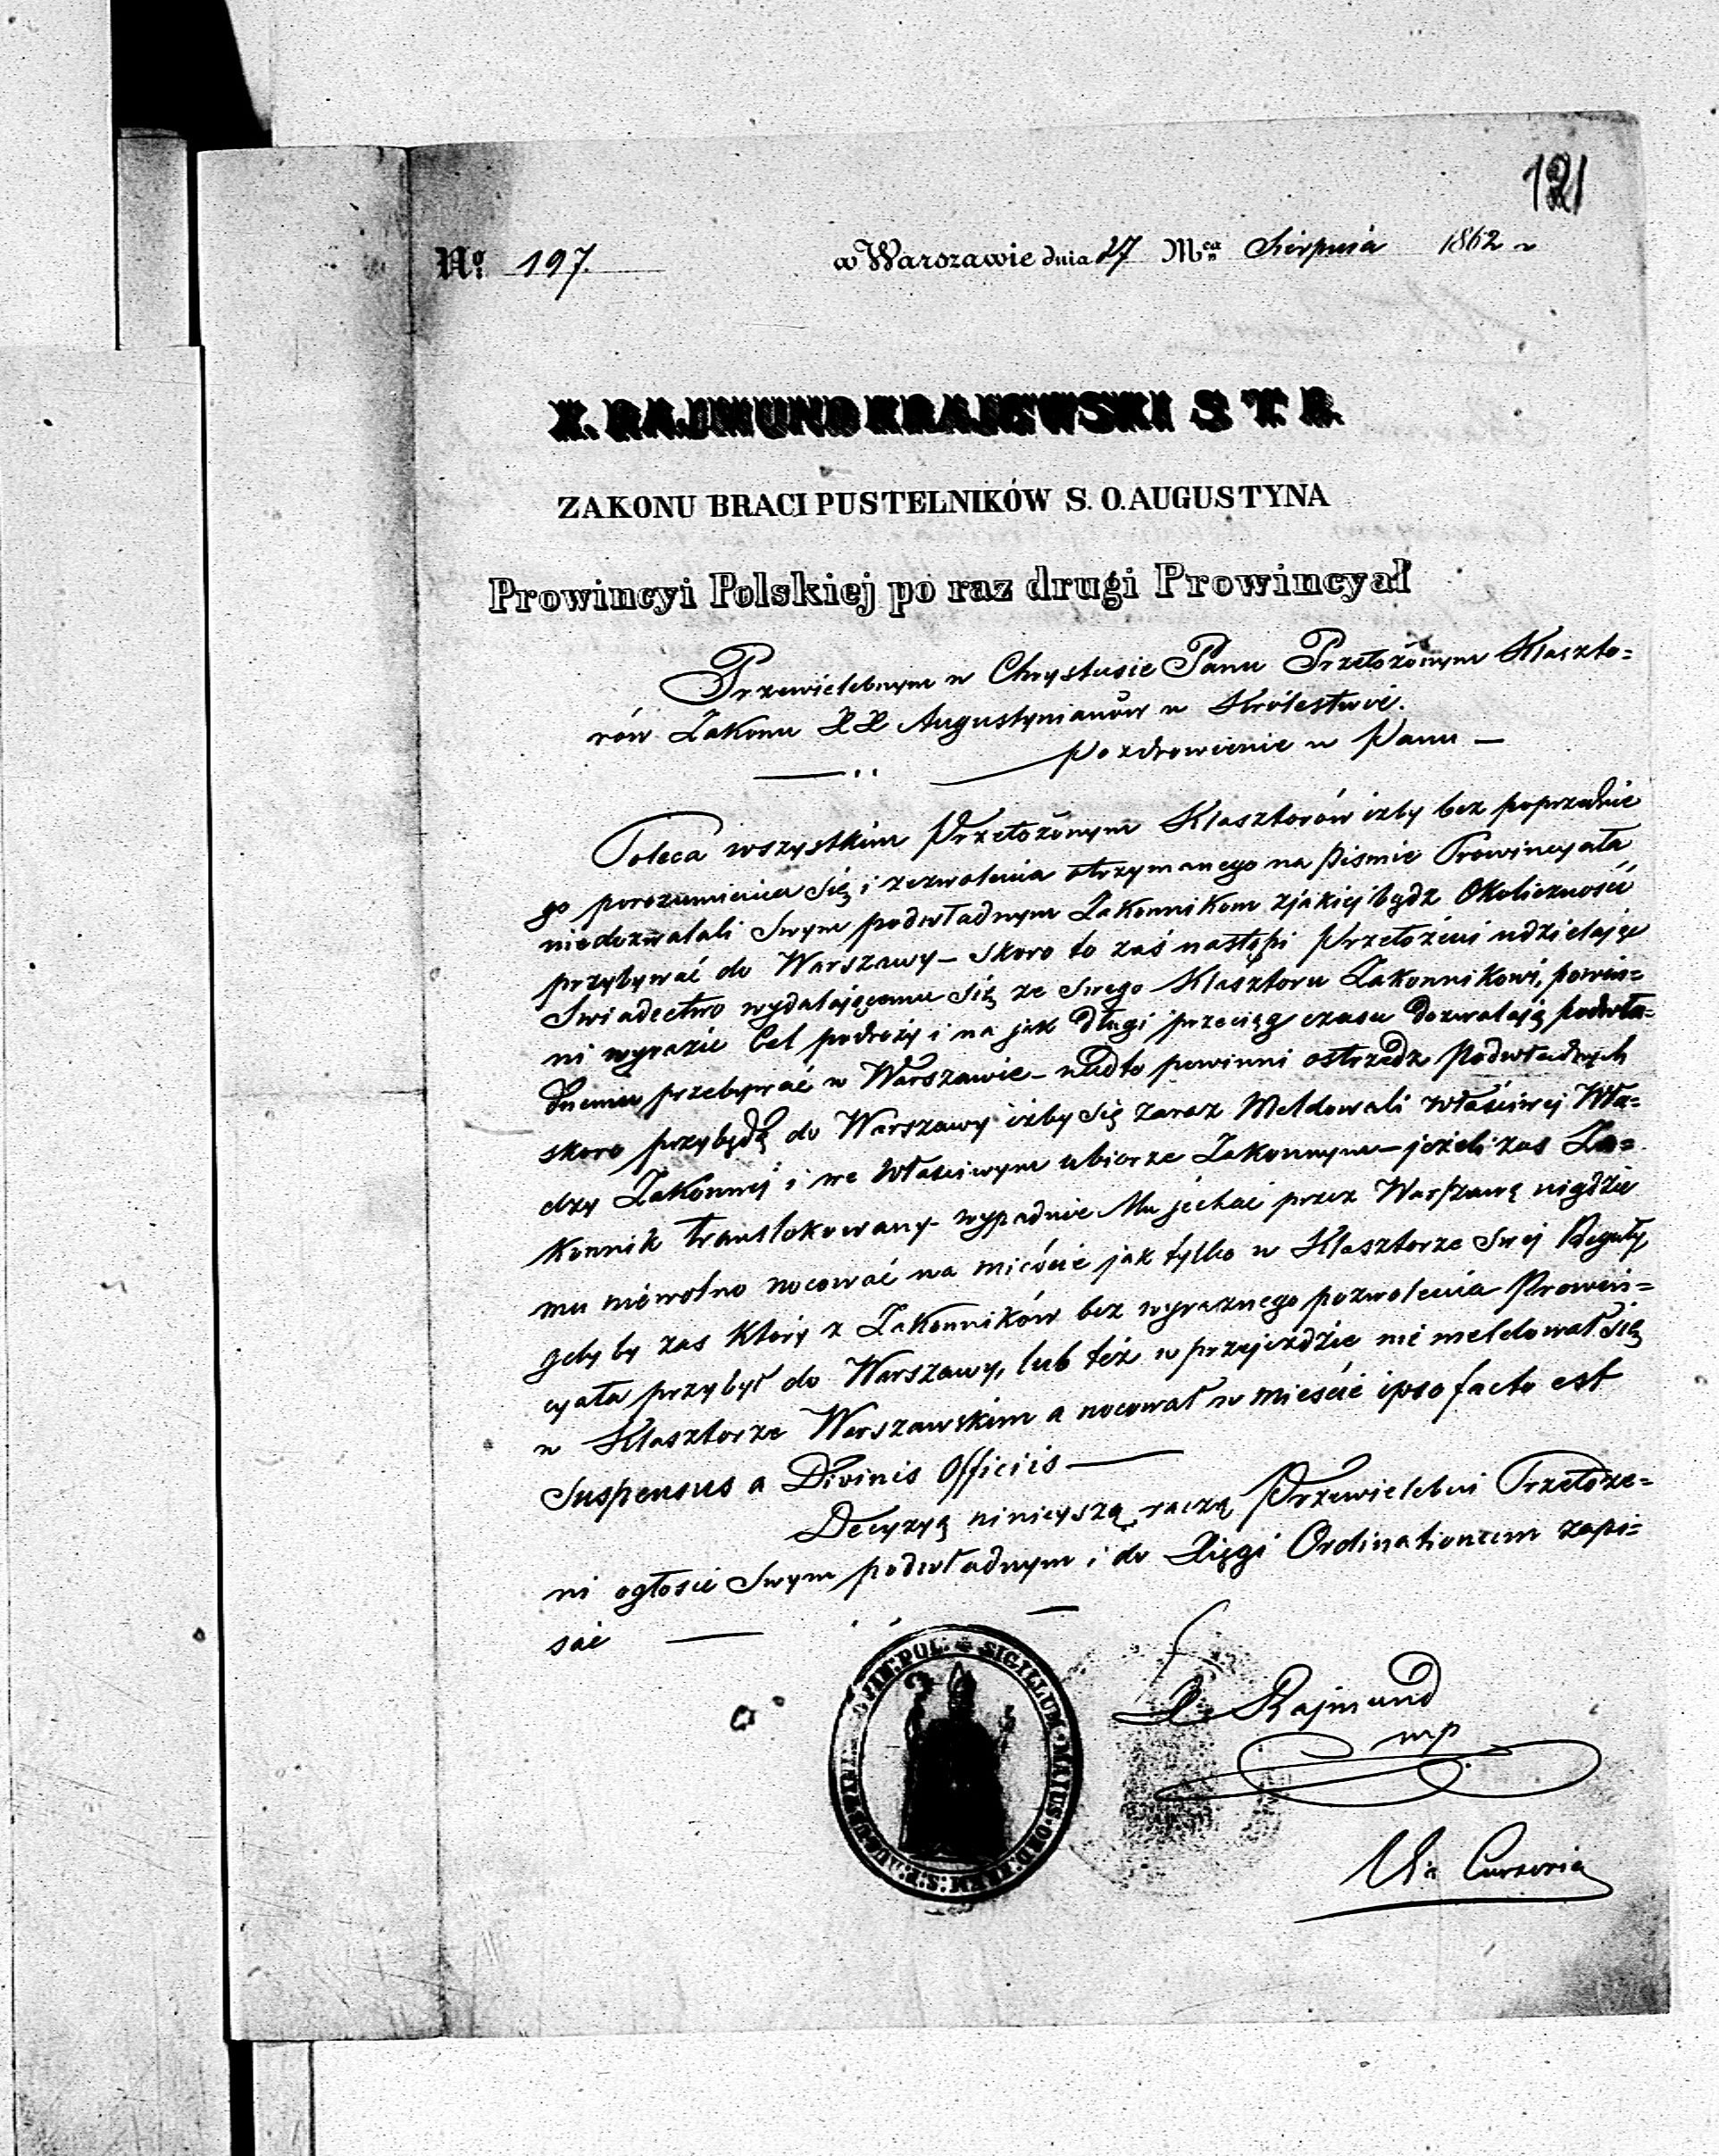 121
No. 197. w Warszawie dnia 27 Mca Sierpnia 1862 r
X. RAJMUND KRAJEWSKI S T. D.
ZAKONU BRACI PUSTELNIKÓW S. O. AUGUSTYNA
Prowincyi Polskiej po raz drugi Prowincyał
Przewielebnym w Chrystusie Panu Przełożonym Klaszto=
rów Zakonu XX Augustynianów w Królestwie.
Pozdrowienie w Panu —
Poleca wszystkim Przełożonym Klasztorów izby bez poprzednie
go porozumienia się i zezwolenia otrzymanego na pismie Prowincyała
niedozwalali Swym podwładnym Zakonnikom zjakiej bądz Okoliczności
przybywać do Warszawy – skoro to zaś nastąpi Przełożeni udzielając
Swiadectwo wydalającemu się ze swego Klasztoru Zakonnikowi, powin=
ni wyrazić Cel podroży i na jak długi przeciąg czasu dozwalają podwła=
dnemu przebywać w Warszawie – nadto powinni ostrzedz Podwładnych
skoro przybędą do Warszawy izby się zaraz Meldowali właściwej Wła=
dzy Zakonnej i we właściwym ubiorze Zakonnym – jeżeli zas Za=
konnik translokowany wypadnie Mu jechać przez Warszawę nigdzie
mu niewolno nocować na mieście jak tylko w Klasztorze Swej Reguły,
gdyby zas który z Zakonników bez wyraznego pozwolenia Prowin=
cyała przybył do Warszawy, lub też w przejeździe nie meldował się
w Klasztorze Warszawskim a nocował w mieście ipso facto est
Suspensus a Divinis Officiis —
Decyzyą niniejszą raczą Przewielebni Przełoże=
ni ogłosić Swym podwładnym i do Xięgi Ordinationum zapi=
sać —
SIGILLUM MAIUS ORD. EREM. S. P. AUGUSTINI POL.
X Rajmund
mp
Via Cursoria